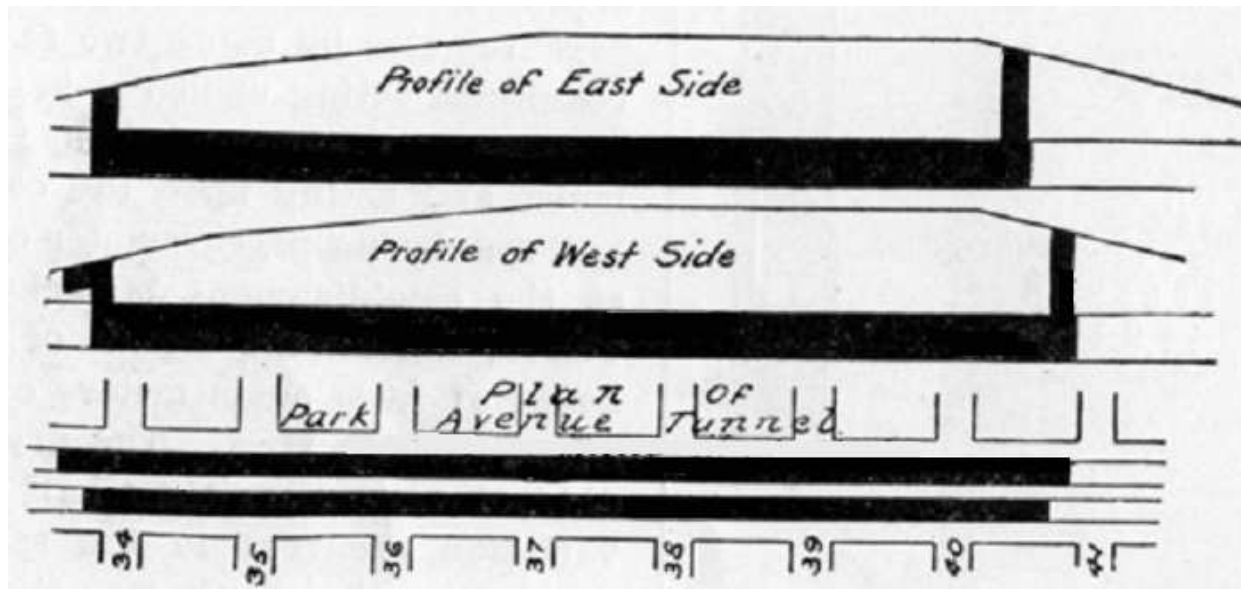 Profile of East Side
Profile of West Side
Plan of
Park Avenue Tunnel
34 35 36 37 38 39 40 41